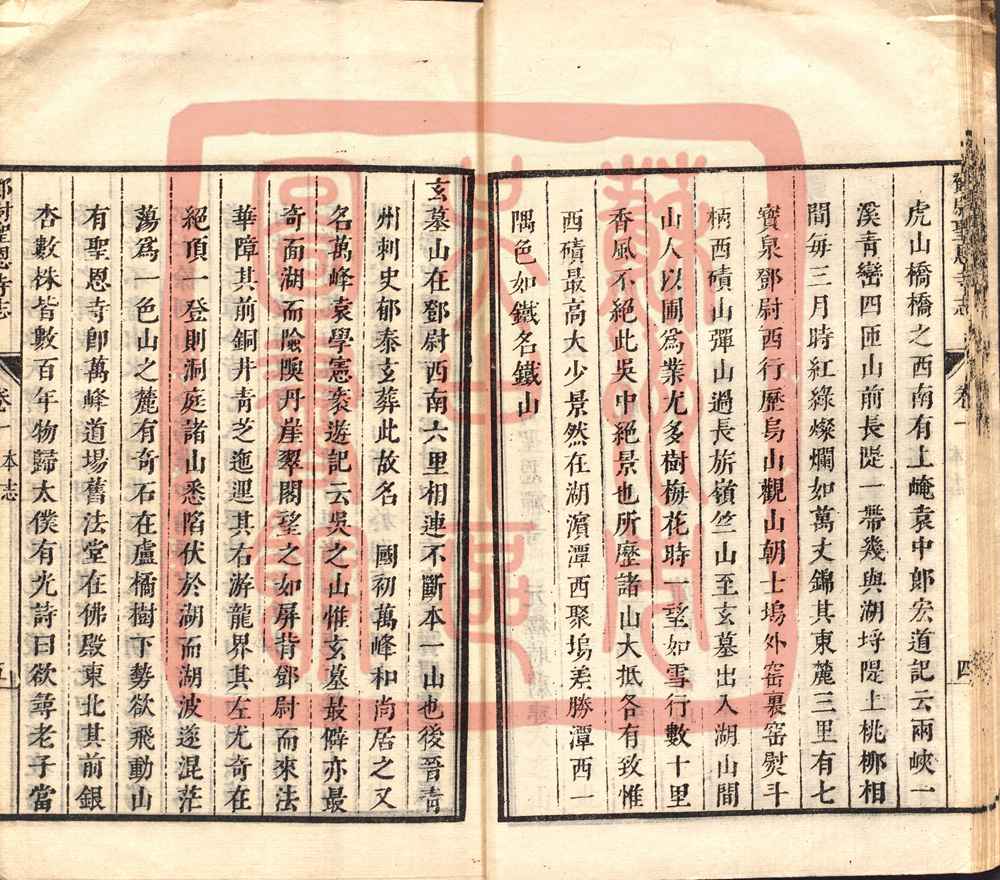 虎山橋橋之西南有上崦袁中郎宏道記云兩峽一
溪青巒四匝山前長隄一帶幾與湖埒隄上桃柳相
間每三月時紅綠燦爛如萬丈錦其東麓三里有七
寶泉鄧尉西行歷烏山觀山朝士塢外窑裏窑熨斗
柄西磧山彈山過長旂嶺竺山至玄墓出入湖山間
山人以圃為業尤多樹梅花時一望如雪行數十里
香風不絕此吳中絕景也所歷諸山大抵各有致惟
西磧最高大少景然在湖濱潭西聚塢差勝潭西一
隅色如鐵名鐵山
四
玄墓山在鄧尉西南六里相連不斷本一山也後晉青
州刺史郁泰玄葬此故名 國初萬峰和尚居之又
名萬峰袁學憲袠遊記云吳之山惟玄墓最僻亦最
奇面湖而險隩丹崖翠閣望之如屏背鄧尉而來法
華障其前銅井青芝迤邐其右游龍界其左尤奇在
絕頂一登則洞庭諸山悉陷伏於湖而湖波遂混茫
蕩為一色山之麓有奇石在盧橘樹下勢欲飛動山
有聖恩寺卽萬峰道場舊法堂在佛殿東北其前銀
杏數株皆數百年物歸太僕有光詩曰欲尋老子當
鄧尉聖恩寺志 卷一 本志 五